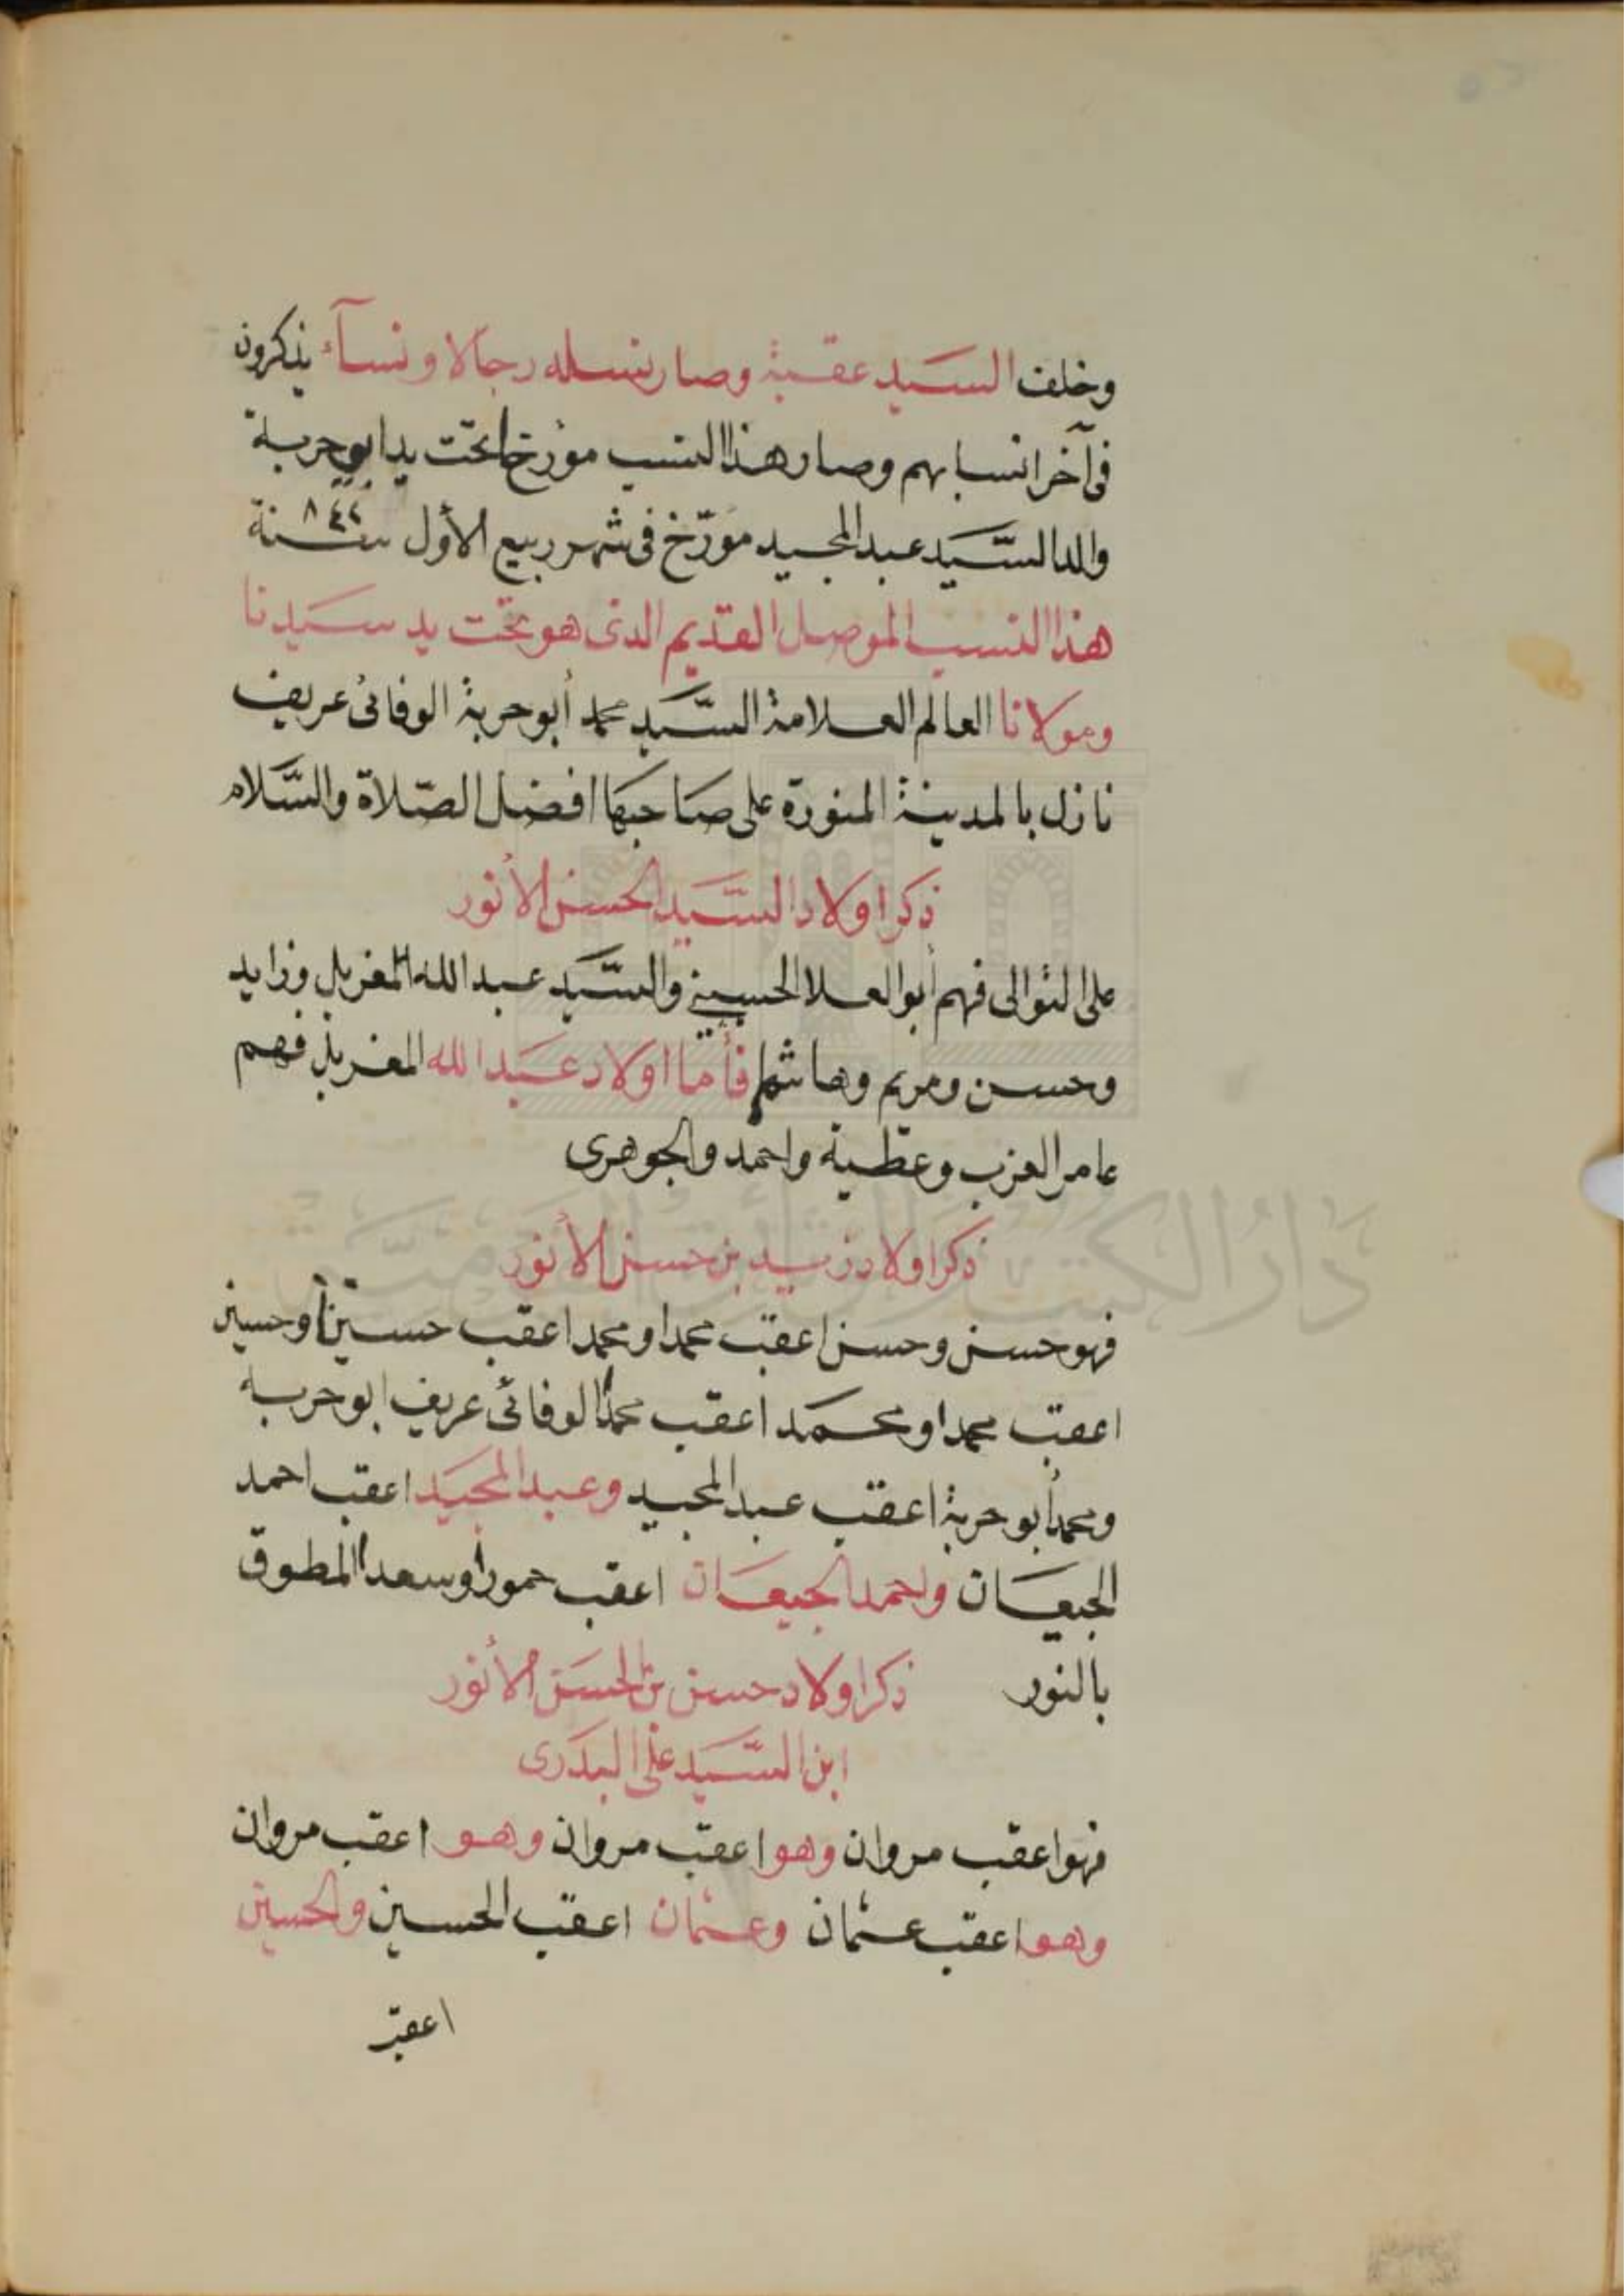 وخلف السيد عقبة وصار نسله رجالا ونسآء يذكرون
فى آخر انسابهم وصار هذا النسب مؤرخا تحت يد ابو حربة
والد السَّيد عبد المجيد مؤرّخ فى شهر ربيع الأول سنة ٨٤٢
هذا النسب الموصل القديم الذى هو تحت يد سيدنا
ومولانا العالم العلامة السَّيد محمد أبو حربة الوفائى عريف
نازل بالمدينة المنورة على صاحبها افضل الصّلاة والسَّلام
ذكر اولاد السَّيد الحسن الأنور
على التوالى فهم أبو العلا الحسينى والسَّيد عبد الله المغربل وزايد
وحسن ومريم وهاشم فأما اولاد عبد الله المغربل فهم
عامر العزب وعطية واحمد والجوهرى
ذكر اولاد زيد بن حسن الأنور
فهو حسن وحسن اعقب محمدا ومحمد اعقب حسينا وحسين
اعقب محمدا ومحمد اعقب محمدا الوفائى عريف ابو حربه
ومحمد أبو حربة اعقب عبد المجيد وعبد المجيد اعقب احمد
الجيعان واحمد الجيعان اعقب حمودا وسعد المطوق
بالنور ذكر اولاد حسن بن الحسن الأنور
ابن السَّيد على البدرى
فهو اعقب مروان وهو اعقب مروان وهو اعقب مروان
وهو اعقب عثمان وعثمان اعقب الحسين والحسين
اعقب
دار الكتب والوثائق القومية